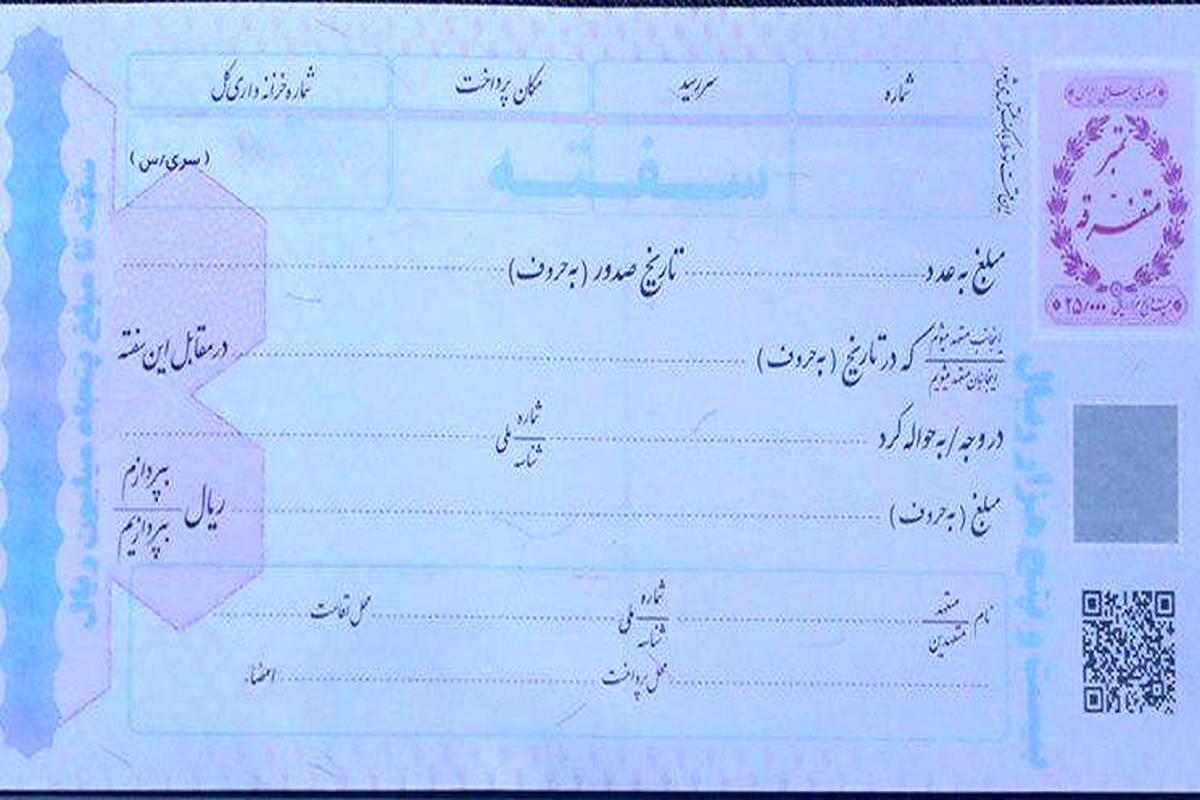 شماره
سررسید
مکان پرداخت
شماره خزانه داری کل
(سری/س)
سفته
مبلغ به عدد تاریخ صدور (به حروف)
اینجانب متعهد میشوم
اینجانبان متعهد میشویم
که در تاریخ (به حروف) در مقابل این سفته
در وجه / به حواله کرد شماره
شناسه ملی
مبلغ (به حروف) ریال بپردازم
بپردازیم
نام متعهد
متعهدین شماره
شناسه ملی محل اقامت
محل پرداخت امضاء
جمهوری اسلامی ایران
تمبر
متفرقه
۲۵/۰۰۰ ریال
سفته تا مبلغ پنجاه میلیون ریال
بیست و پنج هزار ریال